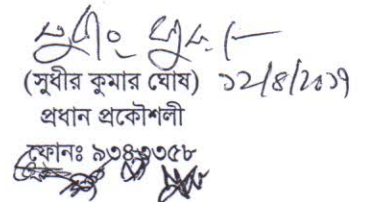 (সুধীর কুমার ঘোষ) ১২/৪/২০১৭
প্রধান প্রকৌশলী
ফোনঃ ৯৩৪৩৩৫৮